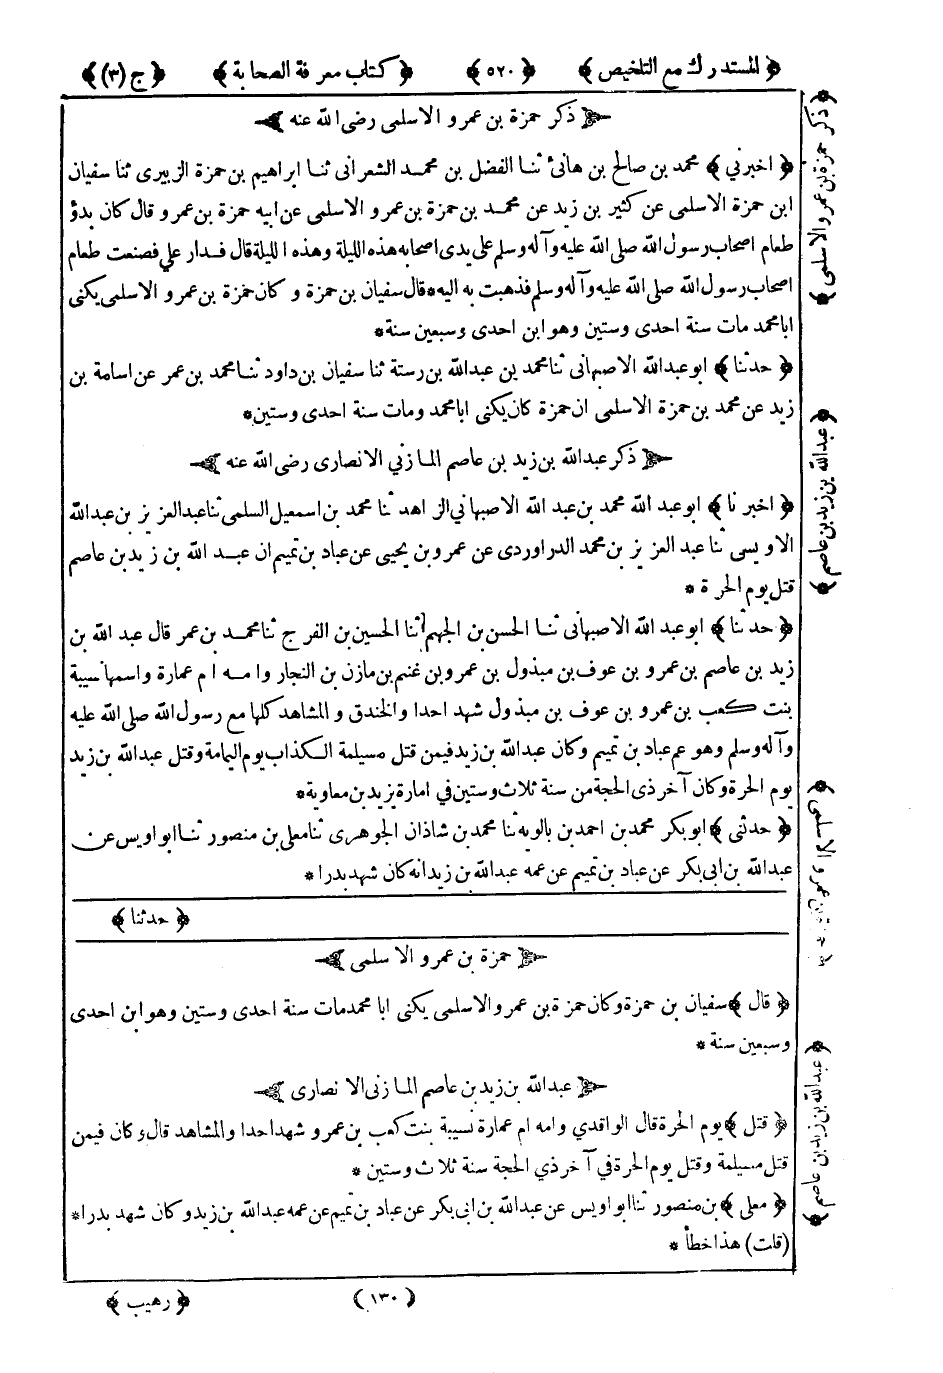 ﴿ المستدرك مع التلخيص ﴾ ﴿ ٥٢٠ ﴾ ﴿ كتاب معرفة الصحابة ﴾ ﴿ ج (٣) ﴾
ذكر حمزة بن عمرو الاسلمى رضى الله عنه
﴿ اخبرني ﴾ محمد بن صالح بن هانئ ثنا الفضل بن محمد الشعرانى ثنا ابراهيم بن حمزة الزبيرى ثنا سفيان
ابن حمزة الاسلمى عن كثير بن زيد عن محمد بن حمزة بن عمرو الاسلمى عن ابيه حمزة بن عمرو قال كان يدؤ
طعام اصحاب رسول الله صلى الله عليه وآله وسلم على يدى اصحابه هذه الليلة وهذه الليلة قال فدار علي فصنعت طعام
اصحاب رسول الله صلى الله عليه وآله وسلم فذهبت به اليه * قال سفيان بن حمزة وكان حمزة بن عمرو الاسلمى يكنى
ابا محمد مات سنة احدى وستين وهو ابن احدى وسبعين سنة *
﴿ حدثنا ﴾ ابو عبدالله الاصبهانى ثنا محمد بن عبدالله بن رستة ثنا سفيان بن داود ثنا محمد بن عمر عن اسامة بن
زيد عن محمد بن حمزة الاسلمى ان حمزة كان يكنى ابا محمد ومات سنة احدى وستين *
ذكر عبدالله بن زيد بن عاصم المازني الانصارى رضى الله عنه
﴿ اخبرنا ﴾ ابو عبد الله محمد بن عبد الله الاصبهاني الزاهد ثنا محمد بن اسمعيل السلمى ثنا عبد العزيز بن عبدالله
الاويسى ثنا عبد العزيز بن محمد الدراوردى عن عمرو بن يحيى عن عباد بن تميم ان عبد الله بن زيد بن عاصم
قتل يوم الحرة *
﴿ حدثنا ﴾ ابو عبد الله الاصبهانى ثنا الحسن بن الجهم ثنا الحسين بن الفرج ثنا محمد بن عمر قال عبد الله بن
زيد بن عاصم بن عمرو بن عوف بن مبذول بن عمرو بن غنم بن مازن بن النجار وامه ام عمارة واسمها نسيبة
بنت كعب بن عمرو بن عوف بن مبذول شهد احدا والخندق والمشاهد كلها مع رسول الله صلى الله عليه
وآله وسلم وهو عم عباد بن تميم وكان عبدالله بن زيد فيمن قتل مسيلمة الكذاب يوم اليمامة وقتل عبدالله بن زيد
يوم الحرة وكان آخر ذى الحجة من سنة ثلاث وستين في امارة يزيد بن معاوية *
﴿ حدثنى ﴾ ابو بكر محمد بن احمد بن بالويه ثنا محمد بن شاذان الجوهرى ثنا معلى بن منصور ثنا ابو اويس عن
عبدالله بن ابى بكر عن عباد بن تميم عن عمه عبدالله بن زيد انه كان شهد بدرا *
﴿ حدثنا ﴾
حمزة بن عمرو الاسلمى
﴿ قال ﴾ سفيان بن حمزة وكان حمزة بن عمرو الاسلمى يكنى ابا محمد مات سنة احدى وستين وهو ابن احدى
وسبعين سنة *
عبدالله بن زيد بن عاصم المازنى الانصارى
﴿ قتل ﴾ يوم الحرة قال الواقدي وامه ام عمارة نسيبة بنت كعب بن عمرو شهد احدا والمشاهد قال وكان فيمن
قتل مسيلمة وقتل يوم الحرة في آخر ذي الحجة سنة ثلاث وستين *
﴿ معلى ﴾ بن منصور ثنا ابو اويس عن عبدالله بن ابى بكر عن عباد بن تميم عن عمه عبدالله بن زيد وكان شهد بدرا *
(قلت) هذا خطأ *
(١٣٠) ﴿ رهيب ﴾
﴿ ذكر حمزة بن عمرو الاسلمى ﴾
﴿ عبدالله بن زيد بن عاصم ﴾
﴿ بن عمرو الاسلمى
﴿ عبدالله بن زيد بن عاصم ﴾